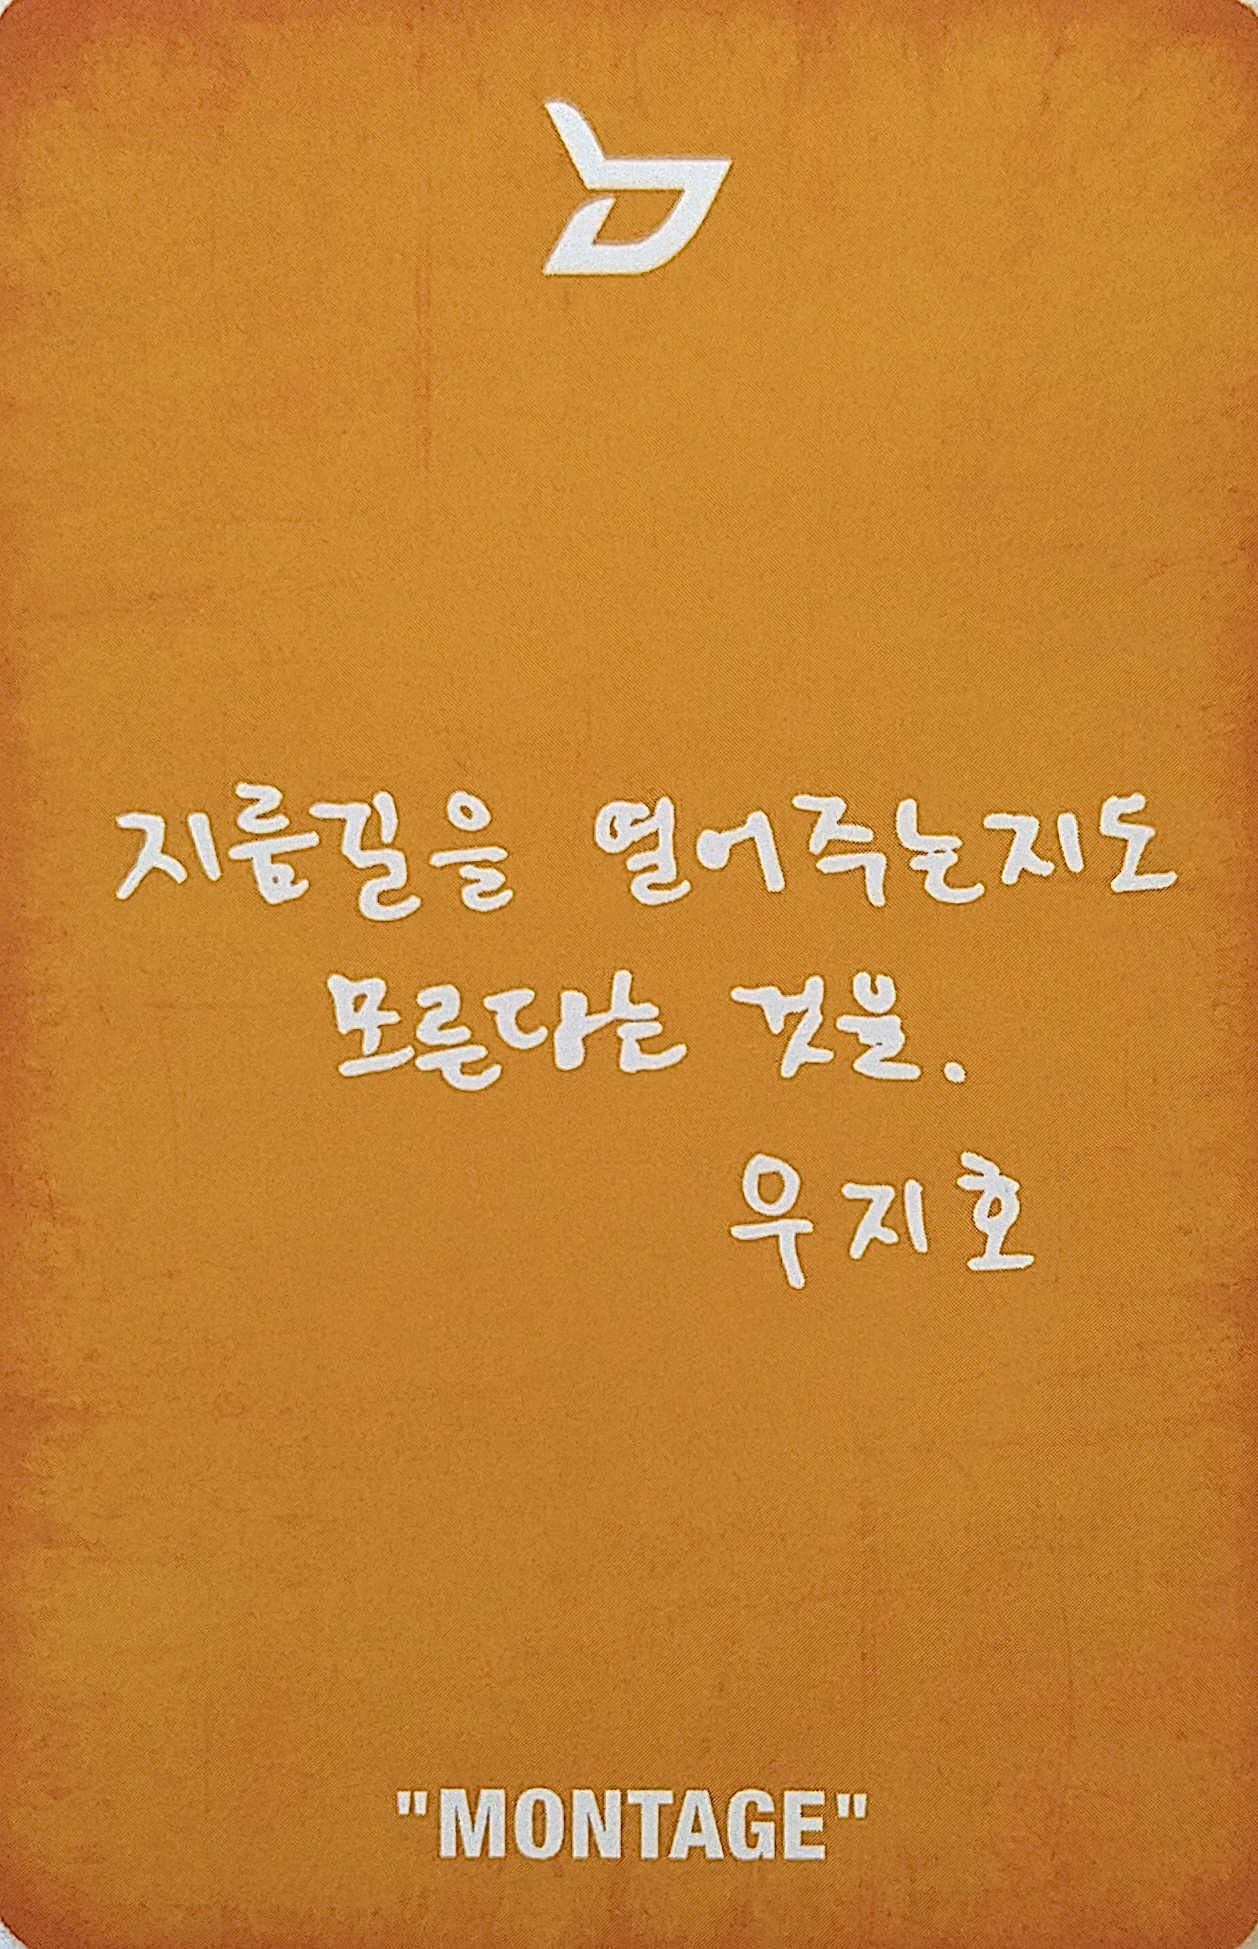 지름길을 열어주는지도
모른다는 것을.
우지호
"MONTAGE"